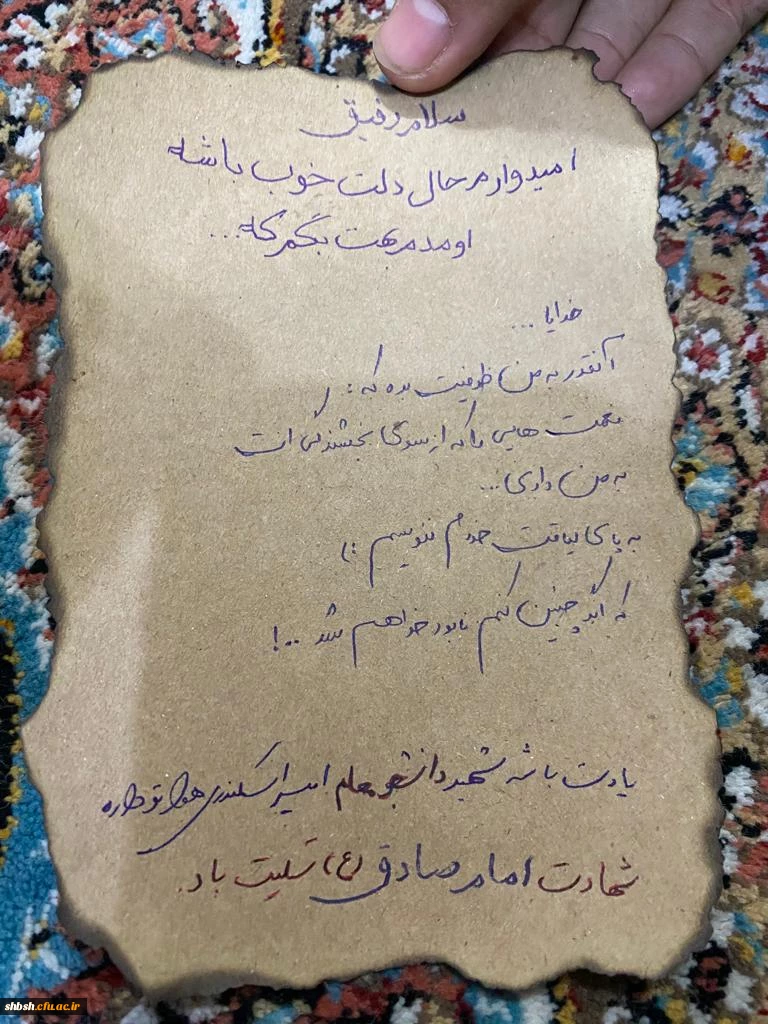 سلام رفیق
امیدوارم حال دلت خوب باشه
اومدم بهت بگم که...
خدایا ...
آنقدر به من ظرفیت بده که :
نعمت هایی را که از سر بخشندگی ات
به من دادی...
به پای لیاقت خودم ننویسم :)
که اگر چنین کنم نابود خواهم شد ..!
یادت باشه شهید دانشجو معلم امیر اسکندری هواتو داره
شهادت امام صادق (ع) تسلیت باد.
shbsh.cfu.ac.ir